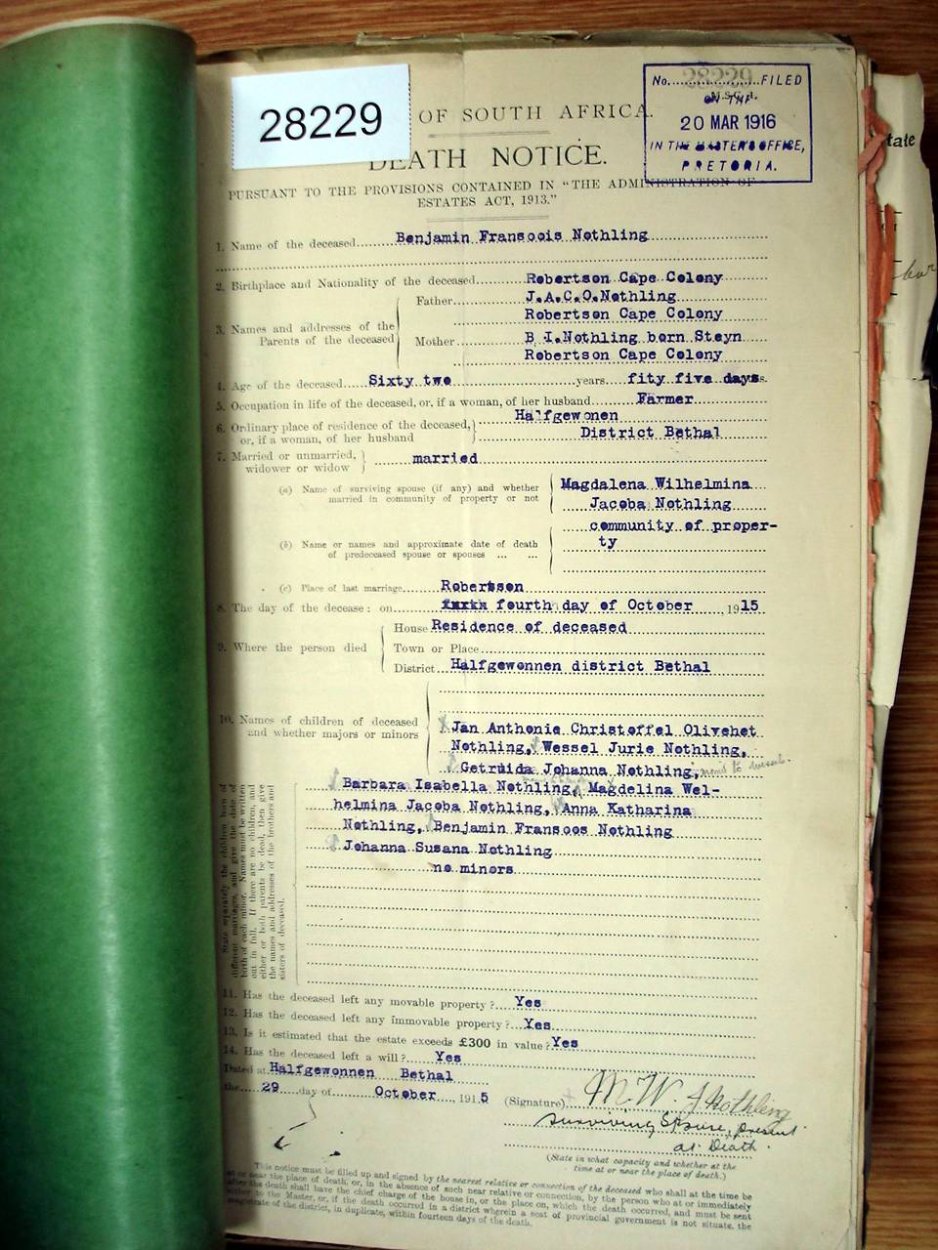 28229
OF SOUTH AFRICA.
No. 28229 FILED
ON THE
20 MAR 1916
IN THE MASTER'S OFFICE,
PRETORIA.
tate
DEATH NOTICE.
PURSUANT TO THE PROVISIONS CONTAINED IN "THE ADMINISTRATION OF
ESTATES ACT, 1913."
1. Name of the deceased Benjamin Fransoois Nothling
2. Birthplace and Nationality of the deceased Robertson Cape Colony
3. Names and addresses of the Parents of the deceased
Father J.A.C.O.Nothling
Robertson Cape Colony
Mother B I.Nothling born Steyn
Robertson Cape Colony
4. Age of the deceased Sixty two years fity five days
5. Occupation in life of the deceased, or, if a woman, of her husband Farmer
6. Ordinary place of residence of the deceased, Halfgewonen
or, if a woman, of her husband District Bethal
7. Married or unmarried, married
widower or widow
(a) Name of surviving spouse (if any) and whether Magdalena Wilhelmina
married in community of property or not Jacoba Nothling
community of proper-
(b) Name or names and approximate date of death ty
of predeceased spouse or spouses ... ...
(c) Place of last marriage Robertson
8. The day of the decease: on fourth day of October 1915
House Residence of deceased
9. Where the person died Town or Place
District Halfgewonnen district Bethal
10. Names of children of deceased Jan Anthonie Christoffel Olivehet
and whether majors or minors Nothling, Wessel Jurie Nothling,
Getruida Johanna Nothling,
Barbara Isabella Nothling, Magdelina Wel-
helmina Jacoba Nothling, Anna Katharina
Nothling, Benjamin Fransoos Nothling
Johanna Susana Nothling
no minors
State separately the children born of
different marriages, and give the date of
birth of each minor. Names must be written
out in full. If there are no children, and
either or both parents be dead, then give
the names and addresses of the brothers and
sisters of deceased.
11. Has the deceased left any movable property? Yes
12. Has the deceased left any immovable property? Yes
13. Is it estimated that the estate exceeds £300 in value? Yes
14. Has the deceased left a will? Yes
Dated at Halfgewonnen Bethal
the 29 day of October, 1915
(Signature) M. W. J Nothling
Surviving Spouse, present
at Death.
(State in what capacity and whether at the
time at or near the place of death.)
This notice must be filled up and signed by the nearest relative or connection of the deceased who shall at the time be
at or near the place of death, or, in the absence of such near relative or connection, by the person who at or immediately
after the death shall have the chief charge of the house in, or the place on, which the death occurred, and must be sent
either to the Master, or, if the death occurred in a district wherein a seat of provincial government is not situate, the
magistrate of the district, in duplicate, within fourteen days of the death.